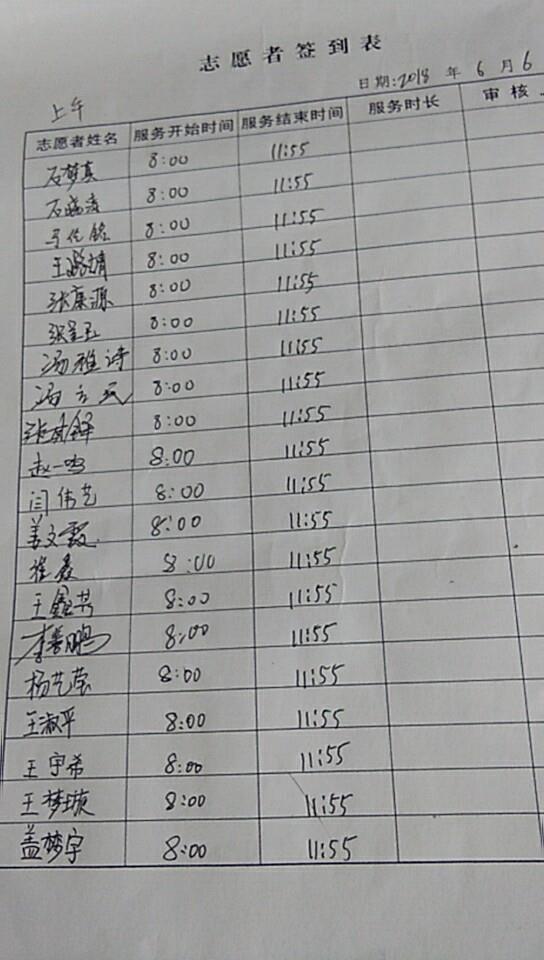 志愿者签到表
日期:2018 年 6 月 6
上午
志愿者姓名 服务开始时间 服务结束时间 服务时长 审核
石梦真 8:00 11:55
石 8:00 11:55
马 铭 8:00 11:55
王 靖 8:00 11:55
张康源 8:00 11:55
张 8:00 11:55
冯雅诗 8:00 11:55
冯 8:00 11:55
张 8:00 11:55
赵一鸣 8:00 11:55
闫伟艺 8:00 11:55
姜文霞 8:00 11:55
崔 8:00 11:55
王鑫书 8:00 11:55
李 鹏 8:00 11:55
杨艺莹 8:00 11:55
王淑平 8:00 11:55
王宇希 8:00 11:55
王梦璇 8:00 11:55
盖梦宇 8:00 11:55